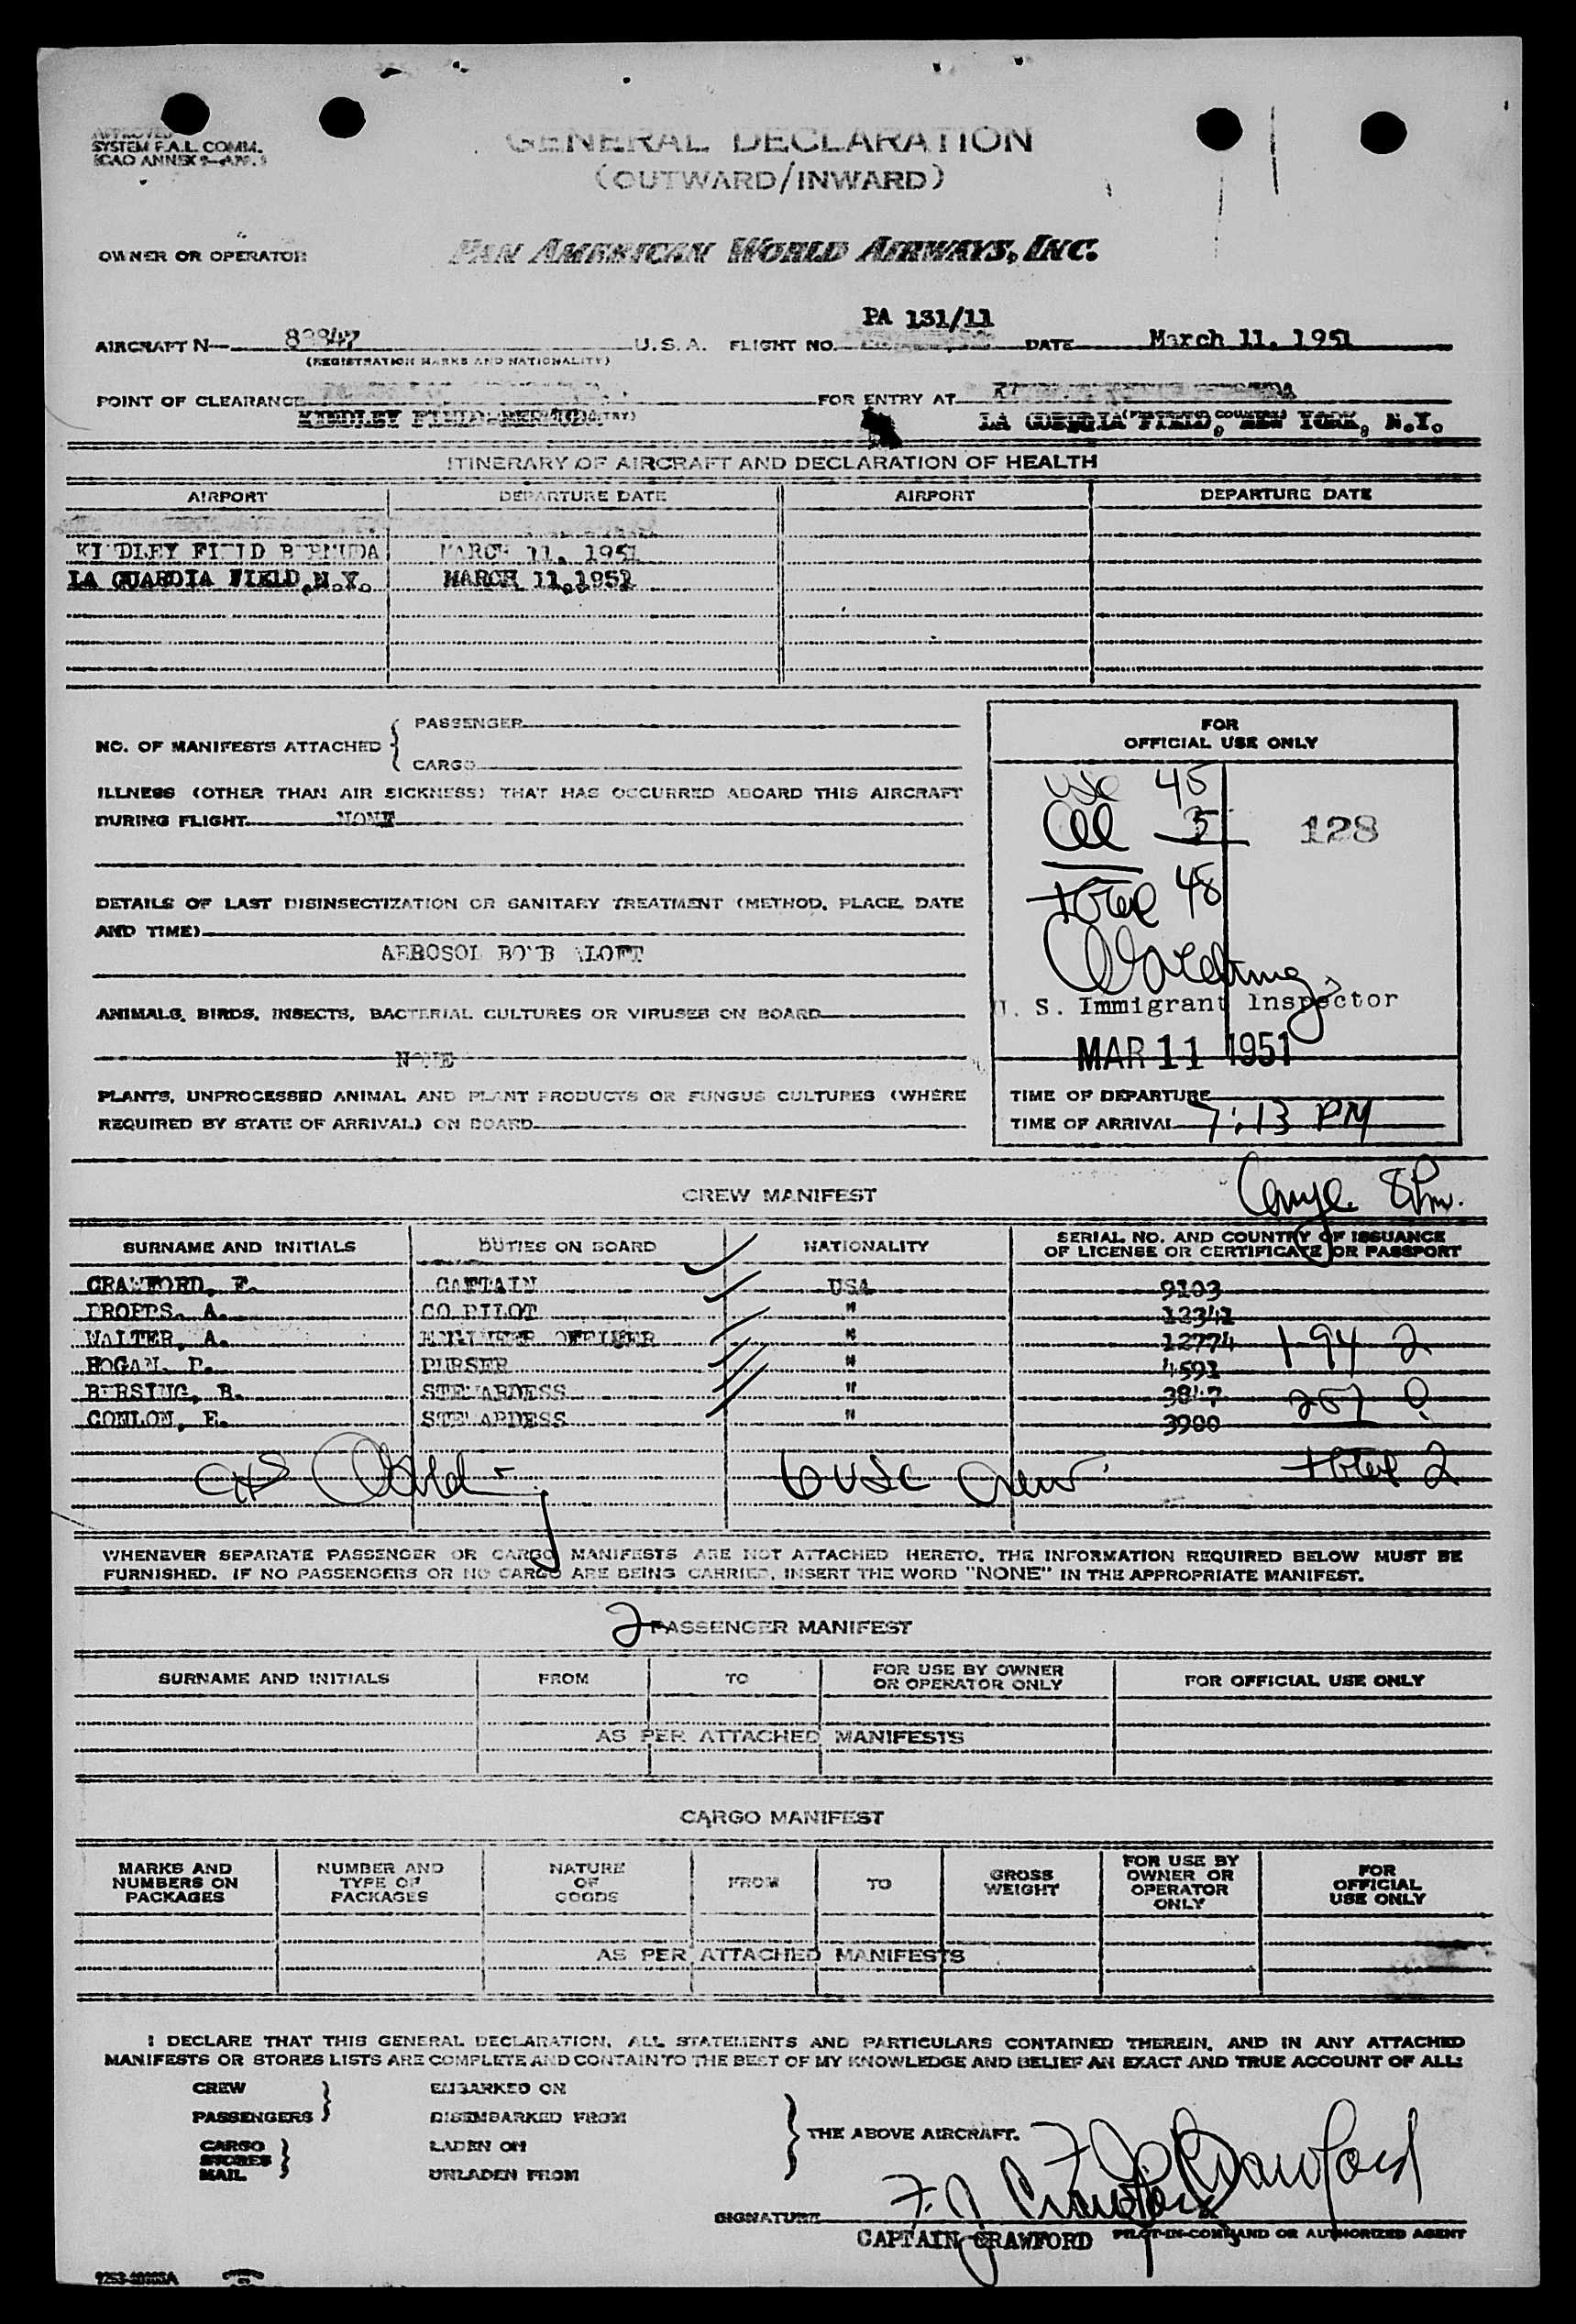 APPROVED
SYSTEM F.A.L. COMM.
ICAO ANNEX 9—APP. 1
GENERAL DECLARATION
(OUTWARD/INWARD)
OWNER OR OPERATOR PAN AMERICAN WORLD AIRWAYS, INC.
PA 131/11
AIRCRAFT N— U.S.A. FLIGHT NO. DATE March 11, 1951
(REGISTRATION MARKS AND NATIONALITY)
POINT OF CLEARANCE FOR ENTRY AT
KINDLEY FIELD BERMUDA LA GUARDIA FIELD, NEW YORK, N.Y.
ITINERARY OF AIRCRAFT AND DECLARATION OF HEALTH
AIRPORT DEPARTURE DATE AIRPORT DEPARTURE DATE
KINDLEY FIELD BERMUDA MARCH 11, 1951
LA GUARDIA FIELD,N.Y. MARCH 11,1951
NO. OF MANIFESTS ATTACHED { PASSENGER
CARGO
ILLNESS (OTHER THAN AIR SICKNESS) THAT HAS OCCURRED ABOARD THIS AIRCRAFT
DURING FLIGHT NONE
DETAILS OF LAST DISINSECTIZATION OR SANITARY TREATMENT (METHOD, PLACE, DATE
AND TIME)
AEROSOL BOMB ALOFT
ANIMALS, BIRDS, INSECTS, BACTERIAL CULTURES OR VIRUSES ON BOARD
NONE
PLANTS, UNPROCESSED ANIMAL AND PLANT PRODUCTS OR FUNGUS CULTURES (WHERE
REQUIRED BY STATE OF ARRIVAL) ON BOARD
FOR
OFFICIAL USE ONLY
USC 45
3
128
Total 48
U. S. Immigrant Inspector
MAR 11 1951
TIME OF DEPARTURE
TIME OF ARRIVAL 7:13 PM
CREW MANIFEST
SURNAME AND INITIALS DUTIES ON BOARD NATIONALITY SERIAL NO. AND COUNTRY OF ISSUANCE
OF LICENSE OR CERTIFICATE OR PASSPORT
CRAWFORD, F. CAPTAIN USA 9103
DROPPS, A. CO PILOT " 12341
WALTER, A. ENGINEER OFFICER " 12774 1-94 2
HOGAN, P. PURSER " 4591
BERSING, B. STEWARDESS " 3847 257 0
CONLON, E. STEWARDESS " 3900
6 USC Crew Total 2
WHENEVER SEPARATE PASSENGER OR CARGO MANIFESTS ARE NOT ATTACHED HERETO, THE INFORMATION REQUIRED BELOW MUST BE
FURNISHED. IF NO PASSENGERS OR NO CARGO ARE BEING CARRIED, INSERT THE WORD "NONE" IN THE APPROPRIATE MANIFEST.
2 PASSENGER MANIFEST
SURNAME AND INITIALS FROM TO FOR USE BY OWNER
OR OPERATOR ONLY FOR OFFICIAL USE ONLY
AS PER ATTACHED MANIFESTS
CARGO MANIFEST
MARKS AND
NUMBERS ON
PACKAGES NUMBER AND
TYPE OF
PACKAGES NATURE
OF
GOODS FROM TO GROSS
WEIGHT FOR USE BY
OWNER OR
OPERATOR
ONLY FOR
OFFICIAL
USE ONLY
AS PER ATTACHED MANIFESTS
I DECLARE THAT THIS GENERAL DECLARATION, ALL STATEMENTS AND PARTICULARS CONTAINED THEREIN, AND IN ANY ATTACHED
MANIFESTS OR STORES LISTS ARE COMPLETE AND CONTAIN TO THE BEST OF MY KNOWLEDGE AND BELIEF AN EXACT AND TRUE ACCOUNT OF ALL:
CREW EMBARKED ON
PASSENGERS DISEMBARKED FROM
THE ABOVE AIRCRAFT.
CARGO LADEN ON
STORES
MAIL UNLADEN FROM
F J Crawford
SIGNATURE F. J Crawford
CAPTAIN CRAWFORD PILOT-IN-COMMAND OR AUTHORIZED AGENT